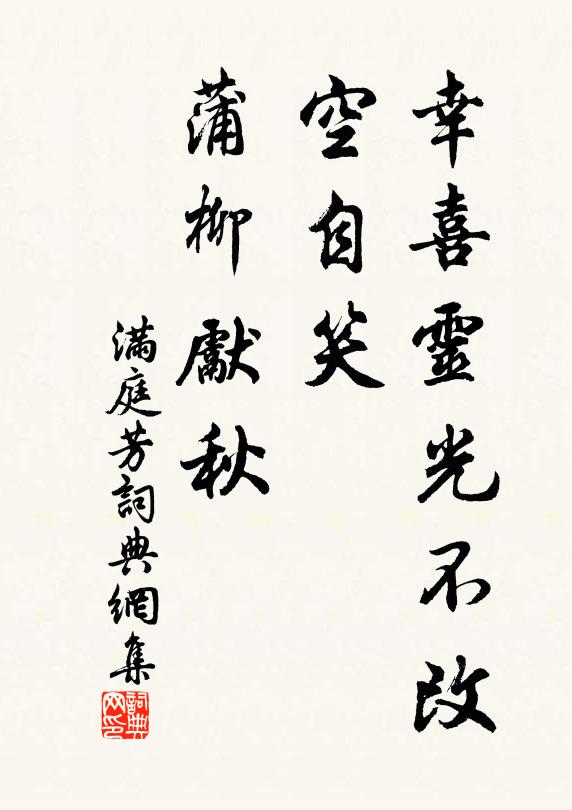 幸喜靈光不改
空自笑
蒲柳獻秋
滿庭芳詞典網集
詞典
网印